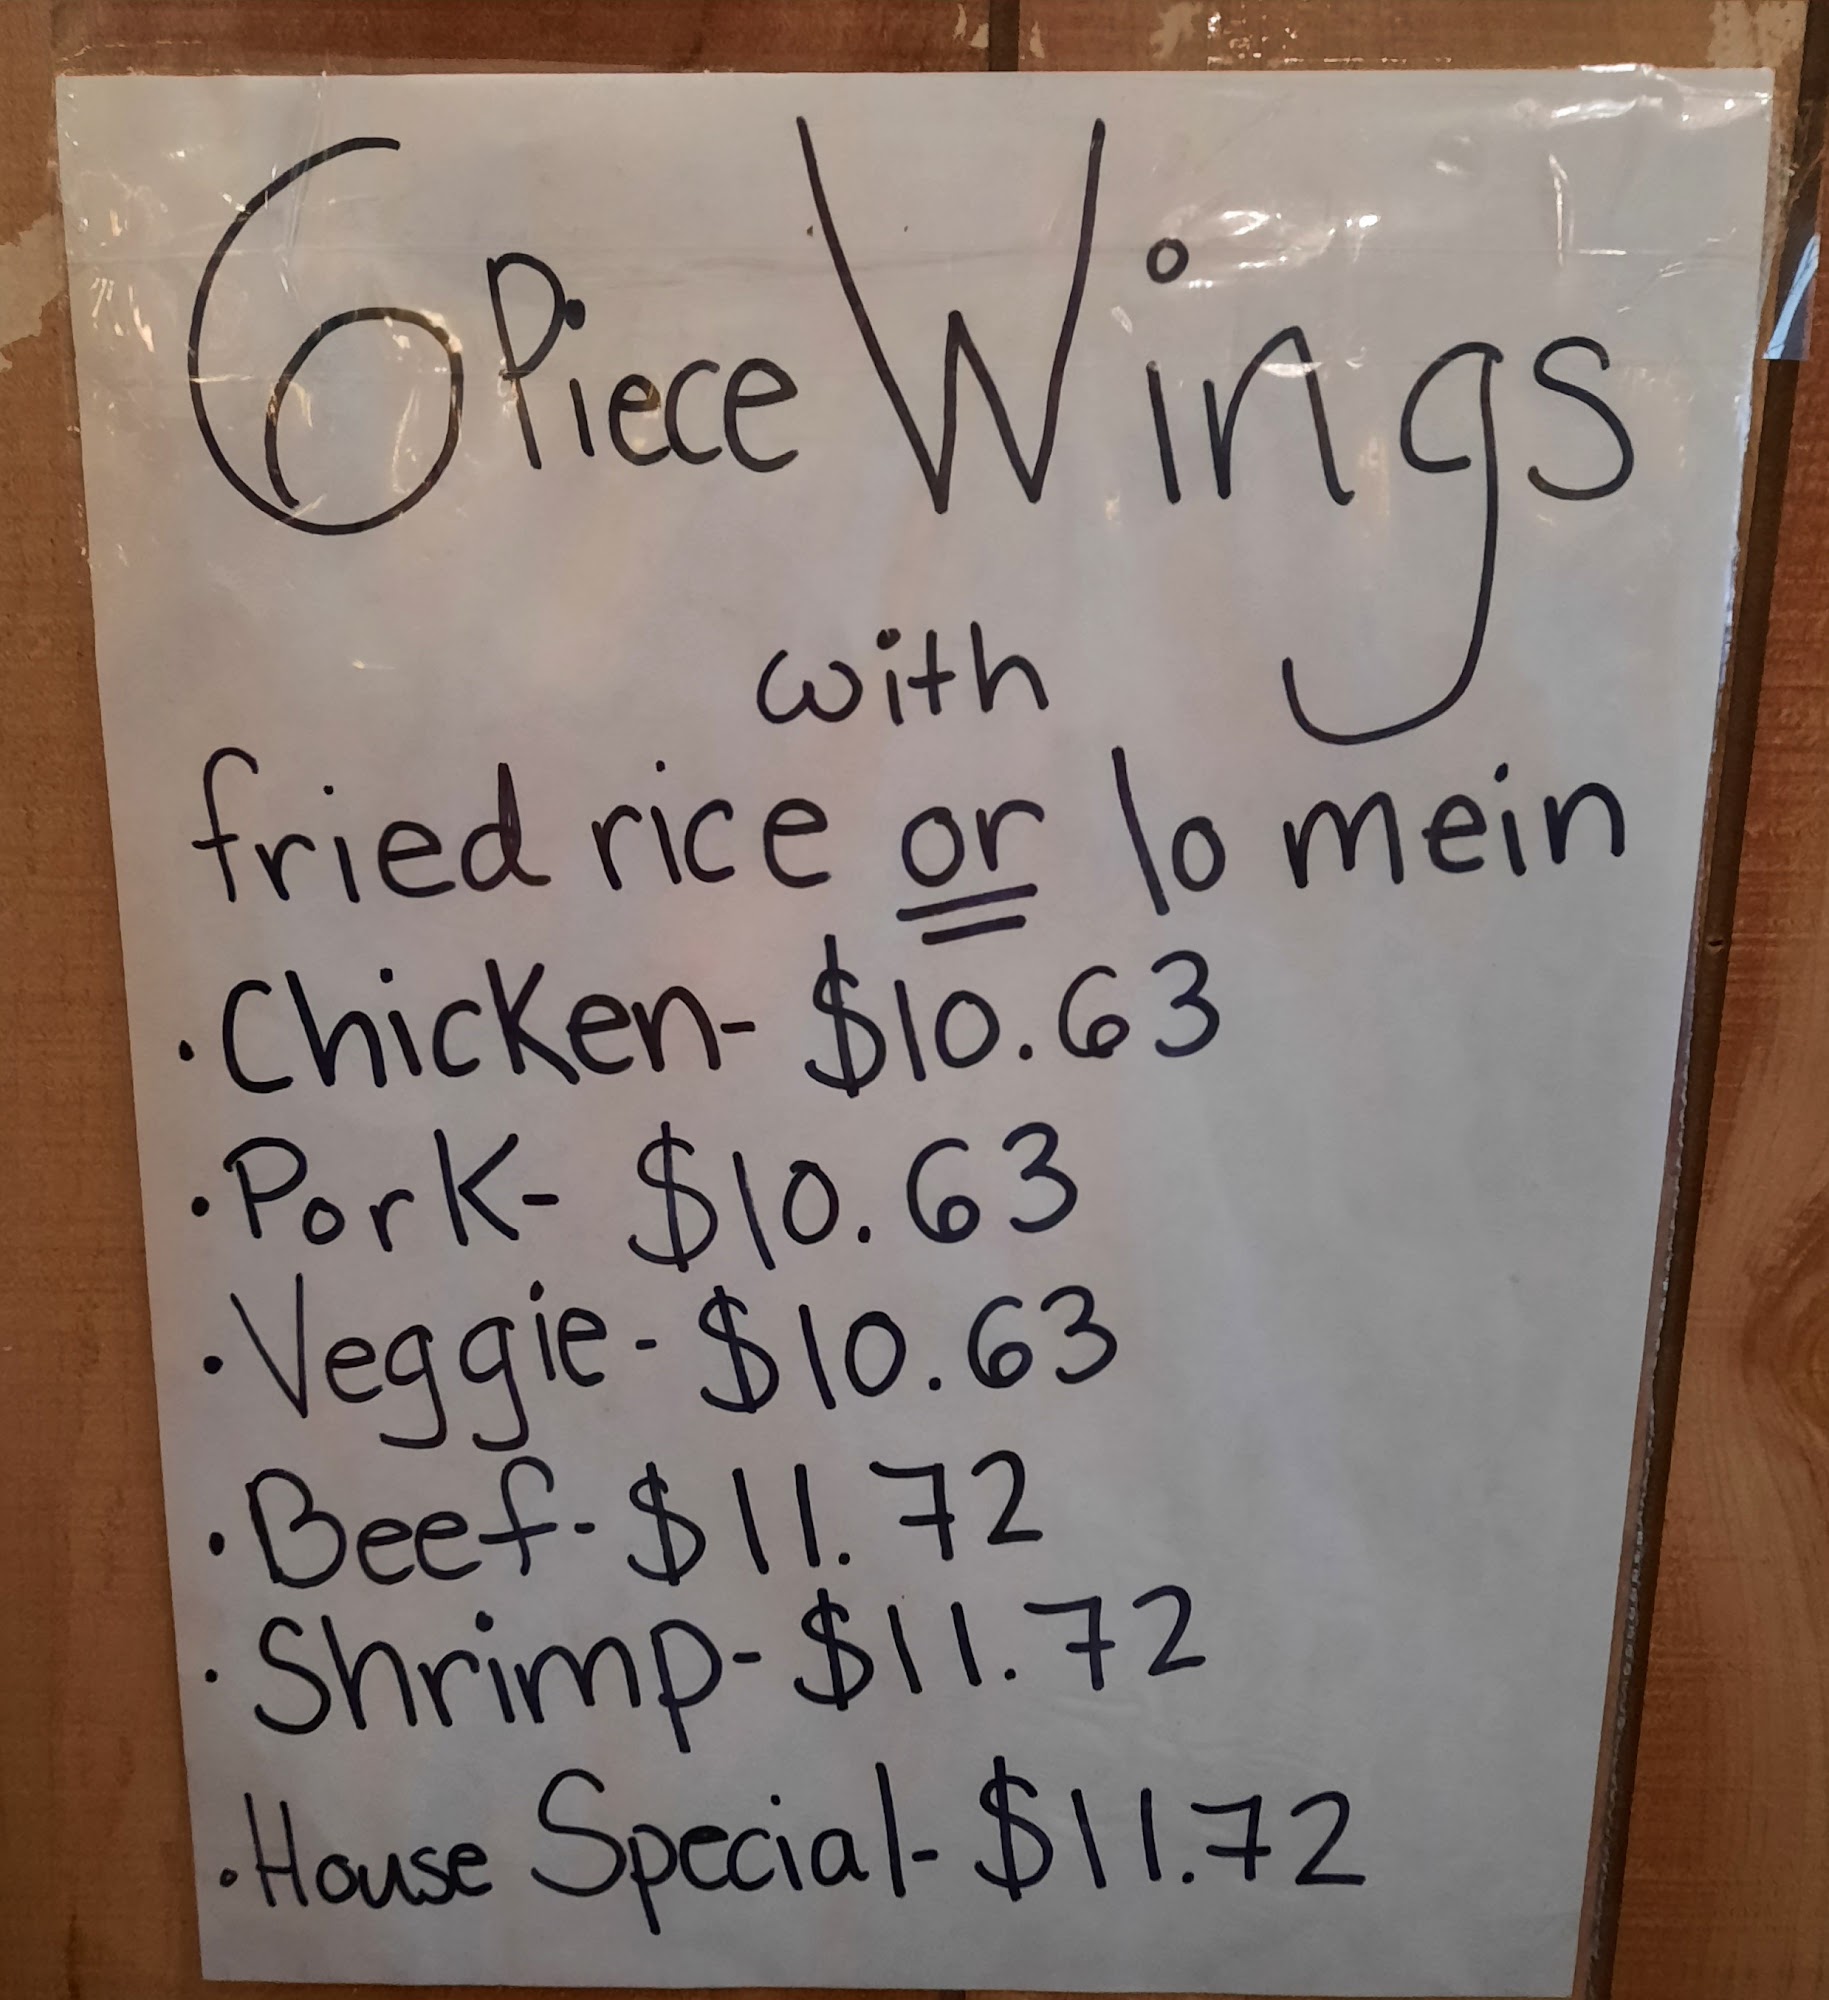 6 Piece Wings
with
fried rice or lo mein
· Chicken- $10.63
· Pork- $10.63
· Veggie- $10.63
· Beef- $11.72
· Shrimp- $11.72
· House Special- $11.72